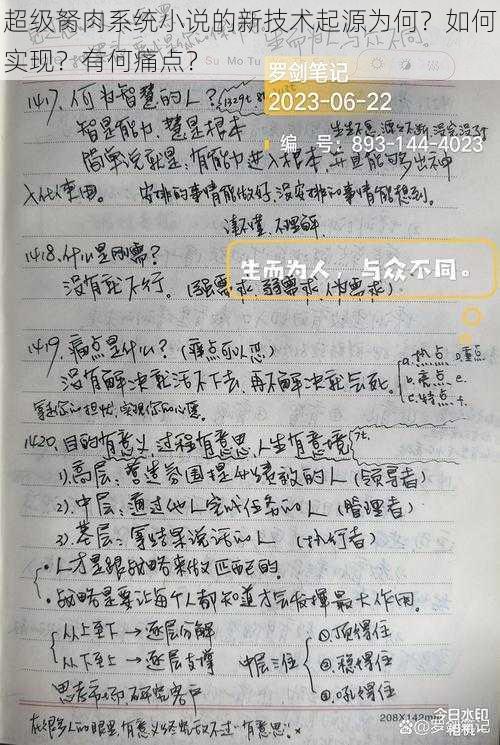 超级胬肉系统小说的新技术起源为何？如何
实现？有何痛点？
Su Mo Tu
罗剑笔记
2023-06-22
编 号：893-144-4023
1417、何为智慧的人？
智是能力，慧是根本
简单说就是：有能力进入根本，并且能够出神
入化使用。 安排的事情能做好，没安排的事情能想到。
读不懂，不理解
1418、什么是刚需？
生而为人，与众不同。
没有就不行。（强需求、弱需求、伪需求）
1419、痛点是什么？（痛点可以忍）
没有解决就活不下去，再不解决就会死。
a.热点
b.亮点 e.
c.特点 f.
1420、目的有意义，过程有意思，人生有意境
1)、高层：营造氛围提升绩效的人（领导者）
2)、中层：通过他人完成任务的人（管理者）
3)、基层：拿结果说话的人（执行者）
人才是跟战略来做匹配的。
战略是要让每个人都知道才会发挥最大作用。
从上至下→逐层分解
从下至上→逐层支撑
中层三住
①顶得住
②稳得住
③
208X142mm
今日水印
相机
百家号/罗剑笔记
在很多人的眼里，有意义终究敌不过“有意思”。